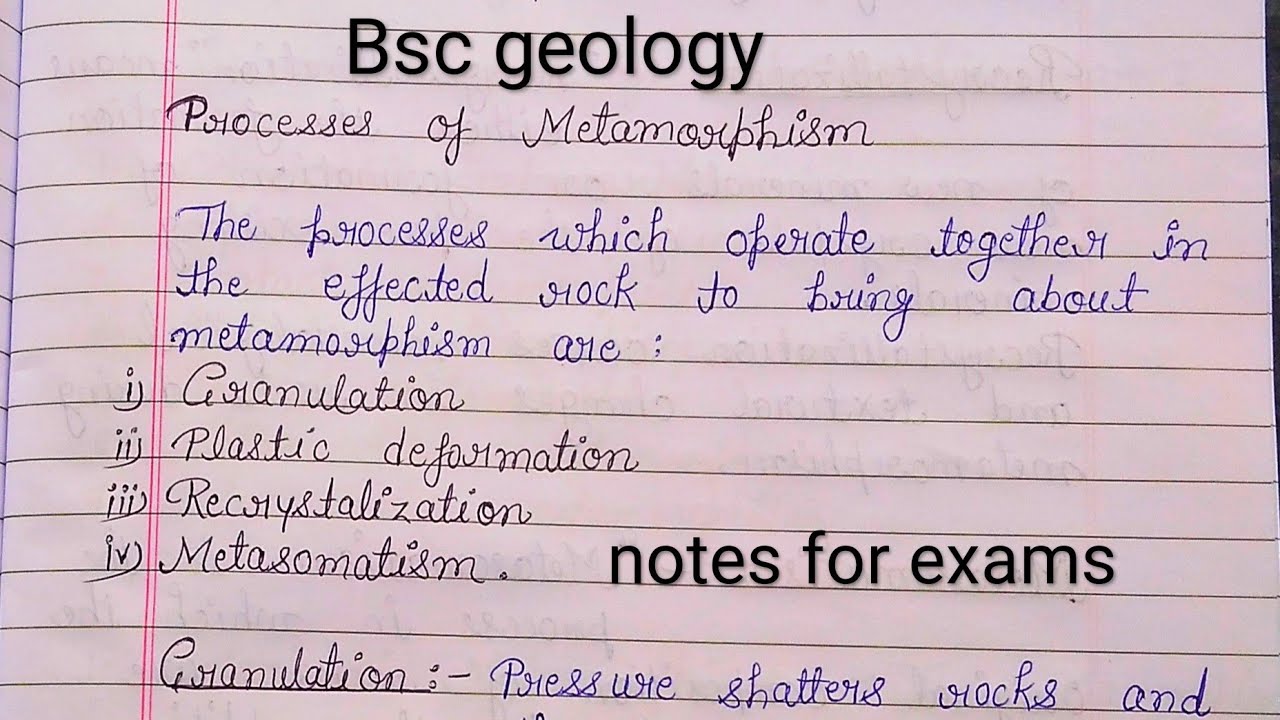 Bsc geology
Processes of Metamorphism
The processes which operate together in
the effected rock to bring about
metamorphism are :
i) Granulation
ii) Plastic deformation
iii) Recrystalization
iv) Metasomatism.
notes for exams
Granulation :- Pressure shatters rocks and